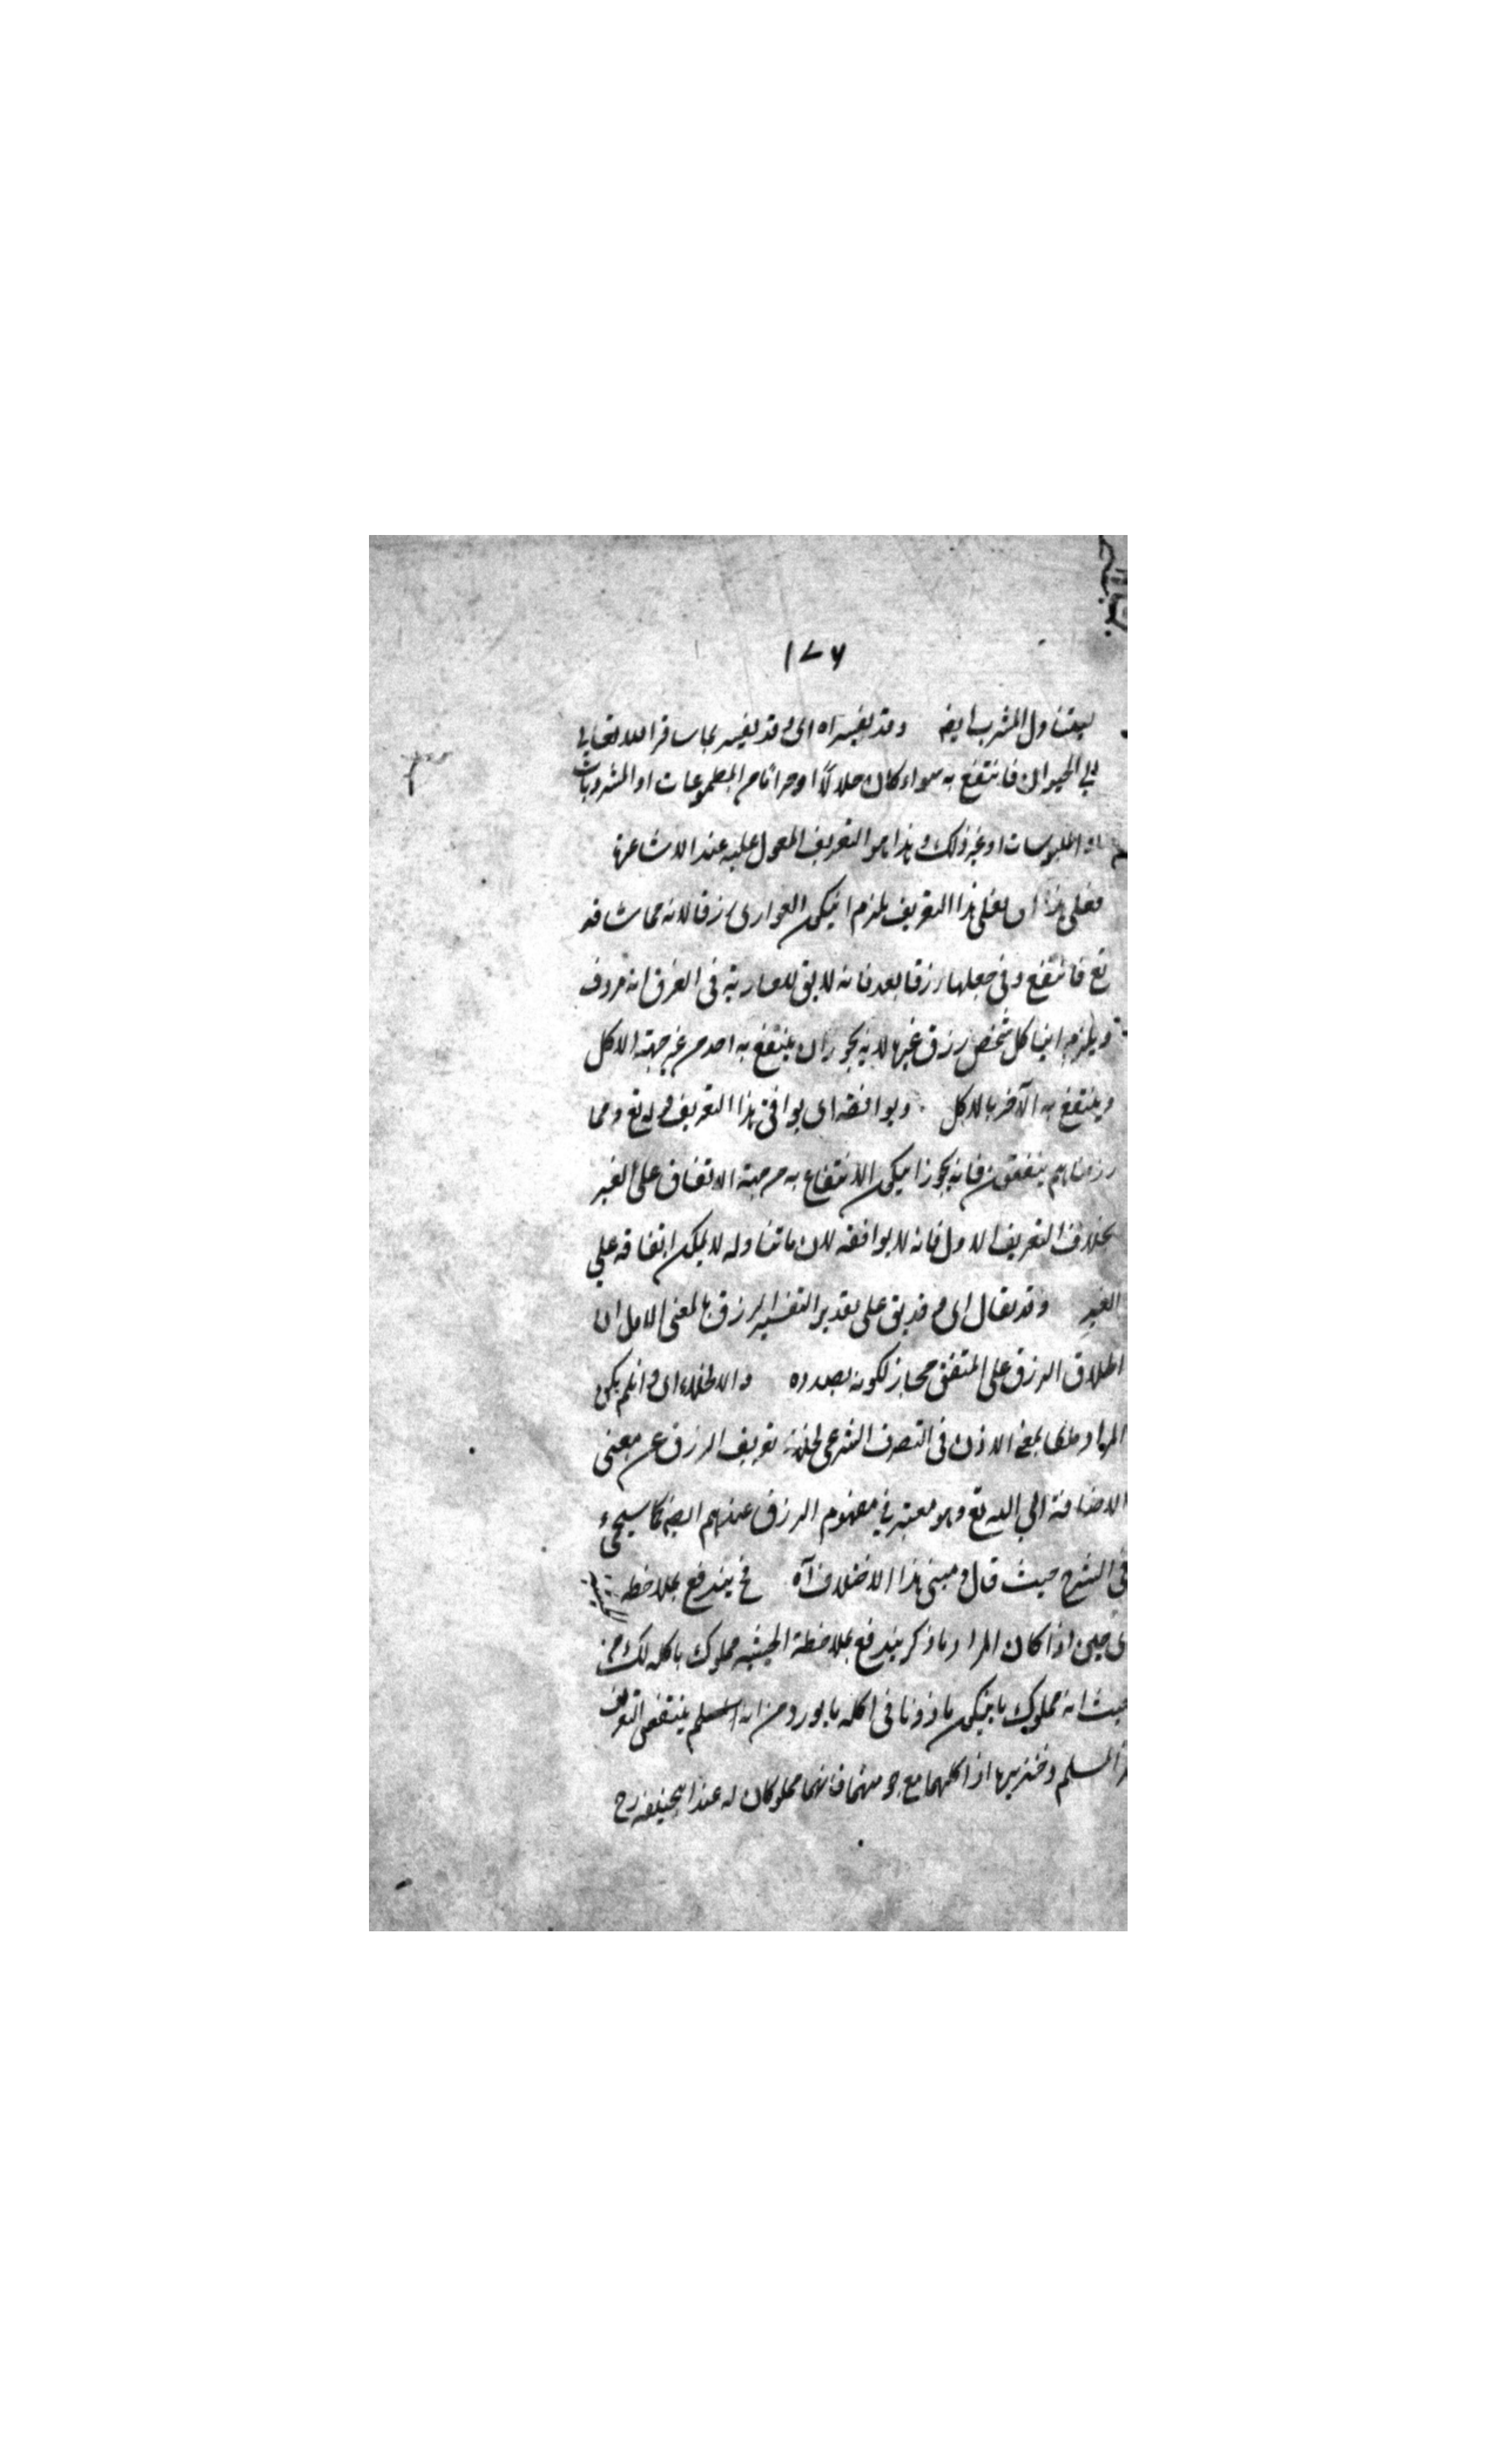 ١٧٦
ليتناول المشرب ايضا وقد يفسر اه اى وقد يفسر بما ساقه الله تعالى
الى الحيوان فانتفع به سواء كان حلالاً او حراما من المطعومات او المشروبات
او الملبوسات او غير ذلك وهذا هو التعريف المعول عليه عند الاشاعرة
فعلى هذا اى فعلى هذا التعريف يلزم ان يكون العوارى رزقا لانه مما ساقه
تع فانتفع وفى جعلها رزقا بعد فانه لا يق للعارية فى العرف انه مرزوق
ويلزم ايضا كل شخص رزق غيره لانه يجوز ان ينتفع به احد من غير جهة الاكل
وينتفع به الآخر بالاكل ويوافقه اى يوافق هذا التعريف قوله تع ومما
رزقناهم ينفقون فانه يجوز ان يكون الانتفاع به من جهة الانفاق على الغير
بخلاف التعريف الاول فانه لا يوافقه لان ما تناوله لا يمكن انفاقه على
الغير وقد يقال اى وقد يق على تقدير التفسير الرزق بالمعنى الاول ان
اطلاق الرزق على المنفق مجاز لكونه بصدده والا لخلا اى وان لم يكن
المراد بمعنى الاذن فى التصرف الشرعى لخلا تعريف الرزق عن معنى
الاضافة الى الله تع وهو معتبر فى مفهوم الرزق عندهم ايضا كما سيجىء
فى الشرح حيث قال ومبنى هذا الاختلاف آه فح يندفع بملاحظة الحيثية
اى حين اذا كان المراد ما ذكر يندفع بملاحظة الحيثية مملوك ياكله المالك من
حيث انه مملوك بان يكون ماذونا فى اكله ما يورد من انه ينتقض التعريف
المسلم وخنزيره اذا اكلهما مع حرمتهما فانهما مملوكان له عند ابيحنيفه رح